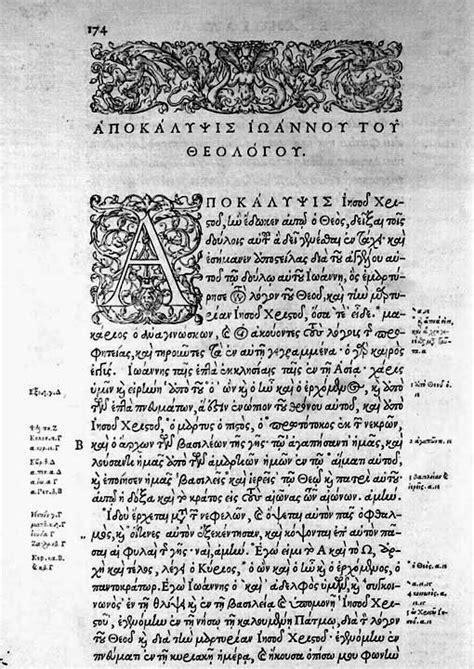 174
ΑΠΟΚΑΛΥΨΙΣ ΙΩΑΝΝΟΥ ΤΟΥ
ΘΕΟΛΟΓΟΥ.
ΑΠΟΚΑΛΥΨΙΣ Ἰησοῦ Χρι-
στοῦ, ἣν ἔδωκεν αὐτῷ ὁ Θεὸς, δεῖξαι τοῖς
δούλοις αὐτοῦ ἃ δεῖ γενέσθαι ἐν τάχει· καὶ
ἐσήμανεν ἀποστείλας διὰ τοῦ ἀγγέλου αὐ-
τοῦ τῷ δούλῳ αὐτοῦ Ἰωάννῃ, ὃς ἐμαρτύ-
ρησε τὸν λόγον τοῦ Θεοῦ, καὶ τὴν μαρτυ-
ρίαν Ἰησοῦ Χριστοῦ, ὅσα τε εἶδε. μα-
κάριος ὁ ἀναγινώσκων, καὶ οἱ ἀκούοντες τοὺς λόγους τῆς προ-
φητείας, καὶ τηροῦντες τὰ ἐν αὐτῇ γεγραμμένα· ὁ γὰρ καιρὸς
ἐγγύς. Ἰωάννης ταῖς ἑπτὰ ἐκκλησίαις ταῖς ἐν τῇ Ἀσίᾳ· χάρις
ὑμῖν καὶ εἰρήνη ἀπὸ τοῦ ὁ ὢν καὶ ὁ ἦν καὶ ὁ ἐρχόμενος, καὶ ἀπὸ
τῶν ἑπτὰ πνευμάτων, ἅ ἐστιν ἐνώπιον τοῦ θρόνου αὐτοῦ, καὶ ἀπὸ
Ἰησοῦ Χριστοῦ, ὁ μάρτυς ὁ πιστὸς, ὁ πρωτότοκος ἐκ τῶν νεκρῶν,
Β καὶ ὁ ἄρχων τῶν βασιλέων τῆς γῆς· τῷ ἀγαπήσαντι ἡμᾶς, καὶ
λούσαντι ἡμᾶς ἀπὸ τῶν ἁμαρτιῶν ἡμῶν ἐν τῷ αἵματι αὐτοῦ,
καὶ ἐποίησεν ἡμᾶς βασιλεῖς καὶ ἱερεῖς τῷ Θεῷ καὶ πατρὶ αὐτοῦ
αὐτῷ ἡ δόξα καὶ τὸ κράτος εἰς τοὺς αἰῶνας τῶν αἰώνων. ἀμήν.
Ἰδοὺ ἔρχεται μετὰ τῶν νεφελῶν, καὶ ὄψεται αὐτὸν πᾶς ὀφθαλ-
μὸς, καὶ οἵτινες αὐτὸν ἐξεκέντησαν, καὶ κόψονται ἐπ' αὐτὸν πᾶ-
σαι αἱ φυλαὶ τῆς γῆς· ναὶ, ἀμήν. Ἐγώ εἰμι τὸ Α καὶ τὸ Ω, ἀρ-
χὴ καὶ τέλος, λέγει ὁ Κύριος, ὁ ὢν καὶ ὁ ἦν καὶ ὁ ἐρχόμενος, ὁ
παντοκράτωρ. Ἐγὼ Ἰωάννης ὁ καὶ ἀδελφὸς ὑμῶν, καὶ συγκοι-
νωνὸς ἐν τῇ θλίψει καὶ ἐν τῇ βασιλείᾳ καὶ ὑπομονῇ Ἰησοῦ Χρι-
στοῦ, ἐγενόμην ἐν τῇ νήσῳ τῇ καλουμένῃ Πάτμῳ, διὰ τὸν λόγον
τοῦ Θεοῦ καὶ διὰ τὴν μαρτυρίαν Ἰησοῦ Χριστοῦ. ἐγενόμην ἐν
πνεύματι ἐν τῇ κυριακῇ ἡμέρᾳ, καὶ ἤκουσα ὀπίσω μου φωνὴν